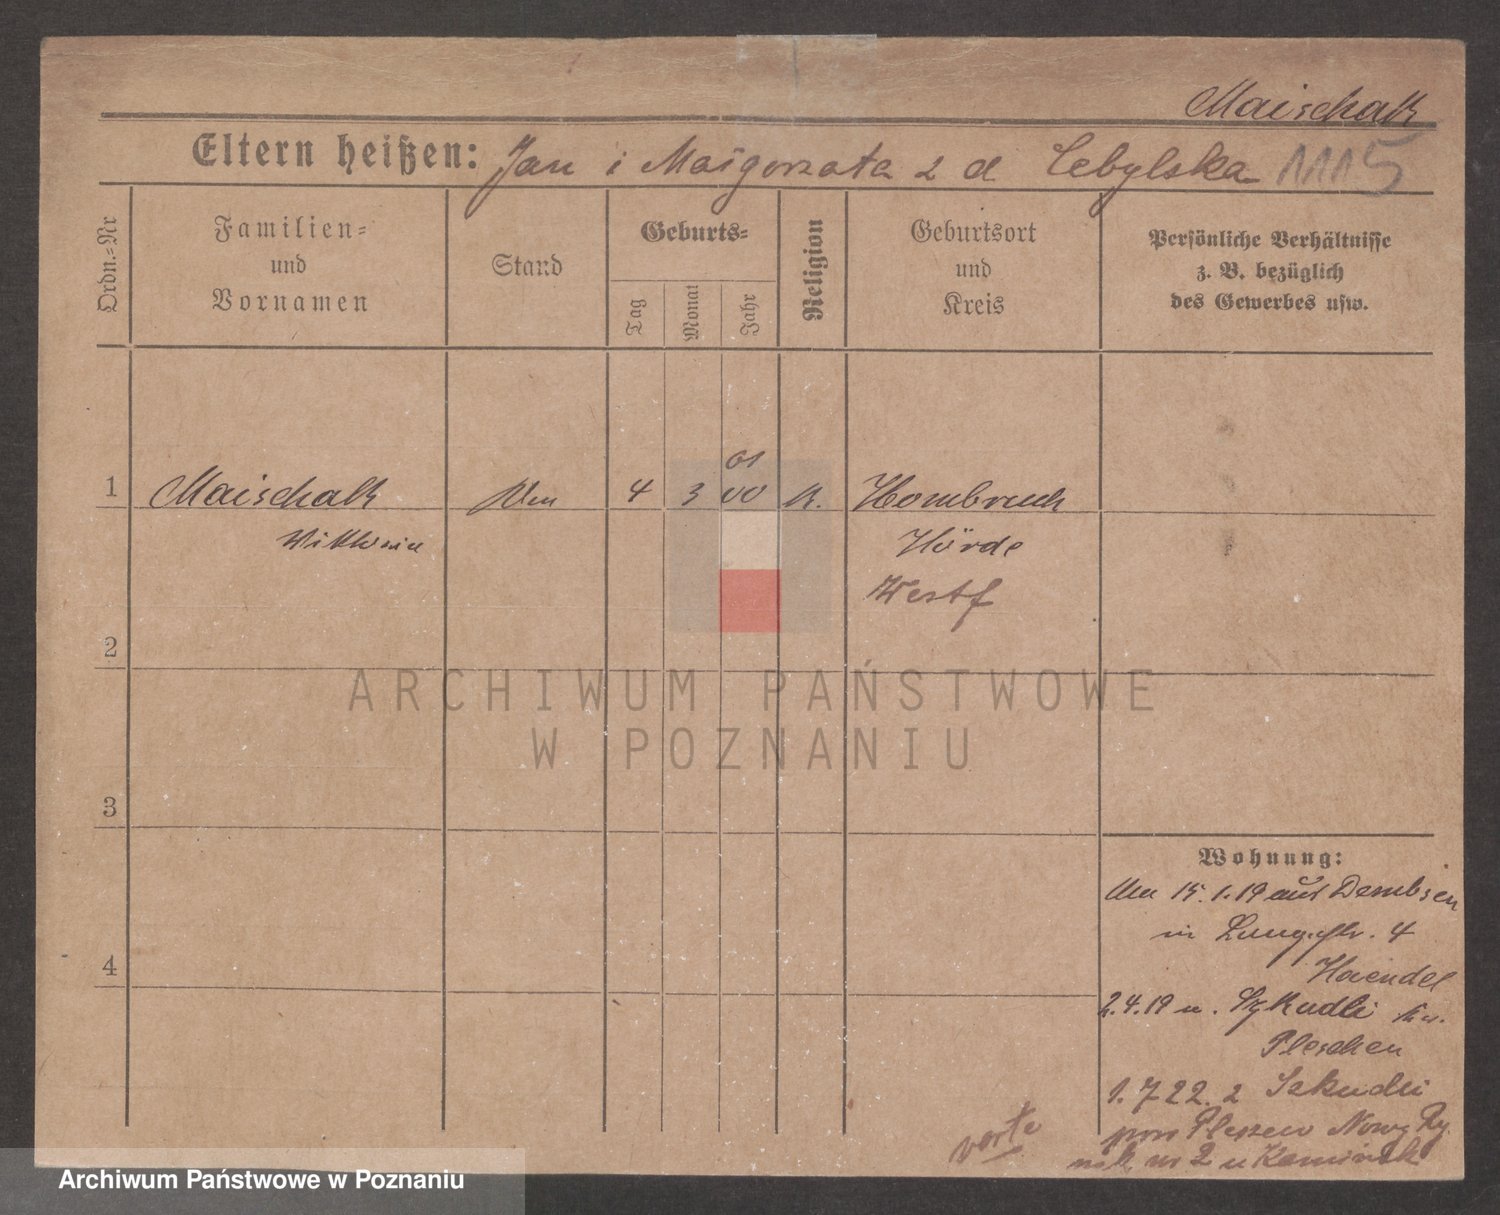 Maischalk
Eltern heißen: Jan i Małgorzata z d Cebylska 1115
Ordn.-Nr
Familien-
und
Vornamen
Stand
Geburts-
Tag
Monat
Jahr
Religion
Geburtsort
und
Kreis
Persönliche Verhältnisse
z. B. bezüglich
des Gewerbes usw.
01
1 Maischalk 4 3 00 k. Hombruch
Wiktoria Hörde
Westf
2
ARCHIWUM PAŃSTWOWE
W POZNANIU
3
Wohnung:
15.1.19 aus Dembsen
in Langestr. 4
4
Haendel
2.4.19 n. Szkudli Kr.
Pleschen
1.7.22. z Szkudli
pow Pleszew Nowy Ry
nek nr 2 u Kaminsk
verte
Archiwum Państwowe w Poznaniu